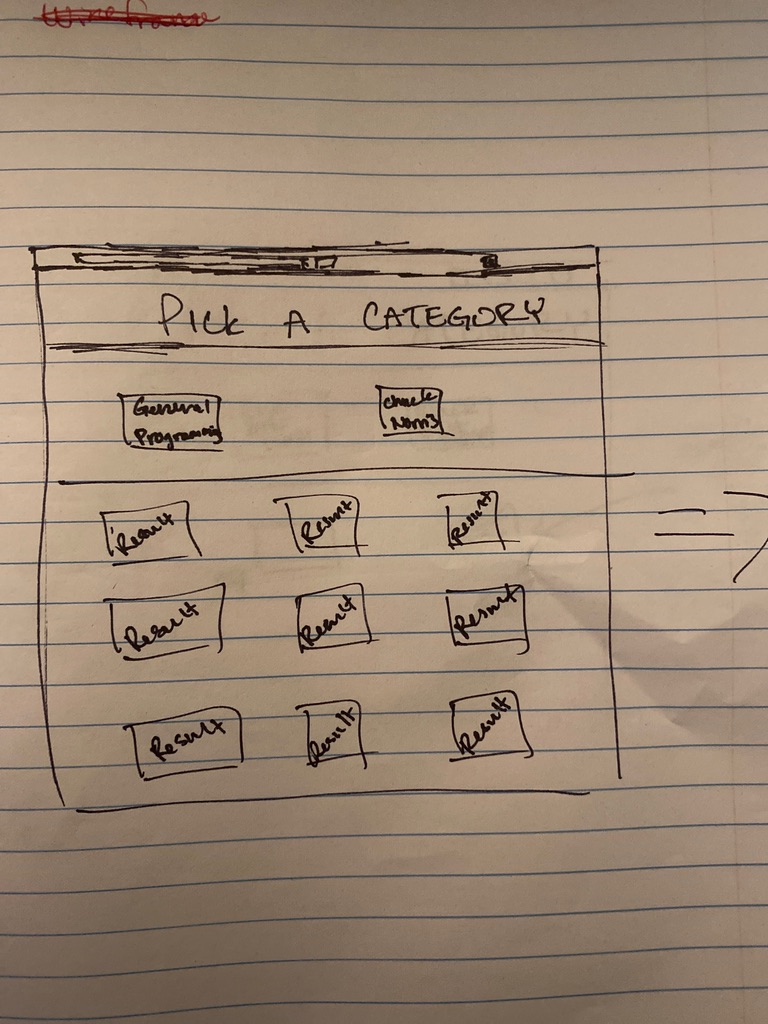 Wireframe
PICK A CATEGORY
General
Programming
Chuck
Norris
Result
Result
Result
Result
Result
Result
Result
Result
Result